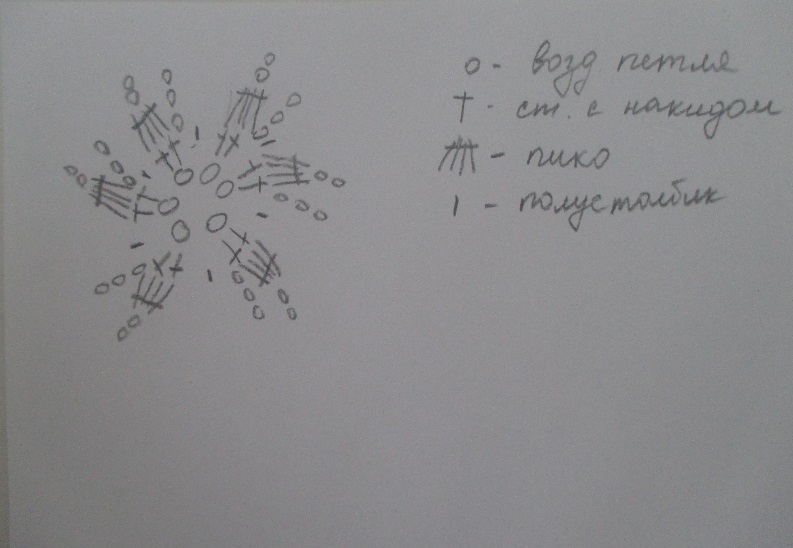 о - возд петля
† - ст. с накидом
- пико
ı - полустолбик